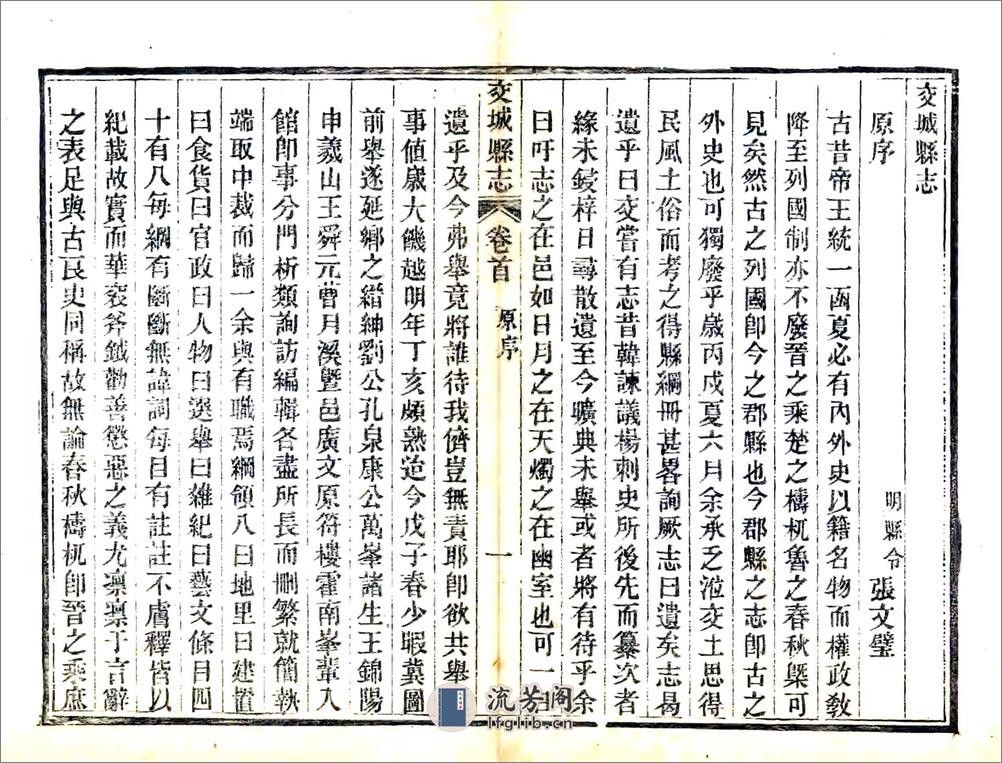 交城縣志
原序
明縣令張文璧
古昔帝王統一函夏必有內外史以籍名物而權政敎
降至列國制亦不廢晉之乘楚之檮杌魯之春秋槩可
見矣然古之列國卽今之郡縣也今郡縣之志卽古之
外史也可獨廢乎歲丙戍夏六月余承乏涖交土思得
民風土俗而考之得縣綱冊甚畧詢厥志曰遺矣志曷
遺乎曰交嘗有志昔韓諫議楊刺史所後先而纂次者
緣未鋟梓日尋散遺至今曠典未舉或者將有待乎余
曰吁志之在邑如日月之在天燭之在幽室也可一日
交城縣志 卷首 原序 一
遺乎及今弗舉竟將誰待我儕豈無責耶卽欲共舉
事値歲大饑越明年丁亥頗熟迨今戊子春少暇冀圖
前舉遂延鄉之縉紳劉公孔泉康公萬峯諸生王錦陽
申羲山王舜元曹月溪曁邑廣文原符樓霍南峯輩入
館卽事分門析類詢訪編輯各盡所長而刪繁就簡執
端取中裁而歸一余與有職焉綱領八曰地里曰建置
曰食貨曰官政曰人物曰選舉曰雜紀曰藝文條目四
十有八每綱有斷斷無諱詞每目有註註不膚釋皆以
紀載故實而華袞斧鉞勸善懲惡之義尤凛凛于言辭
之表足與古良史同稱故無論春秋檮杌卽晉之乘庶
流芳阁
lfglib.cn